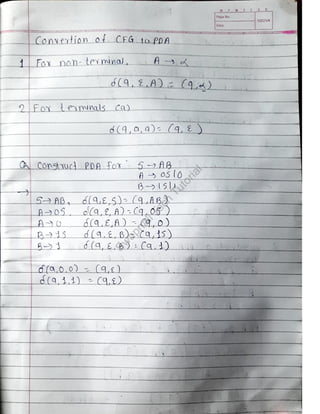 Convertion of CFG to PDA
1 For non-terminal, A → α
δ(q, ε, A) = (q, α)
2 For terminals (a)
δ(q, a, a) = (q, ε)
Q Construct PDA for: S → AB
A → 0S|0
B → 1S|1
→
S → AB, δ(q, ε, S) = (q, AB)
A → 0S, δ(q, ε, A) = (q, 0S)
A → 0 δ(q, ε, A) = (q, 0)
B → 1S δ(q, ε, B) = (q, 1S)
B → 1 δ(q, ε, B) = (q, 1)
δ(q, 0, 0) = (q, ε)
δ(q, 1, 1) = (q, ε)